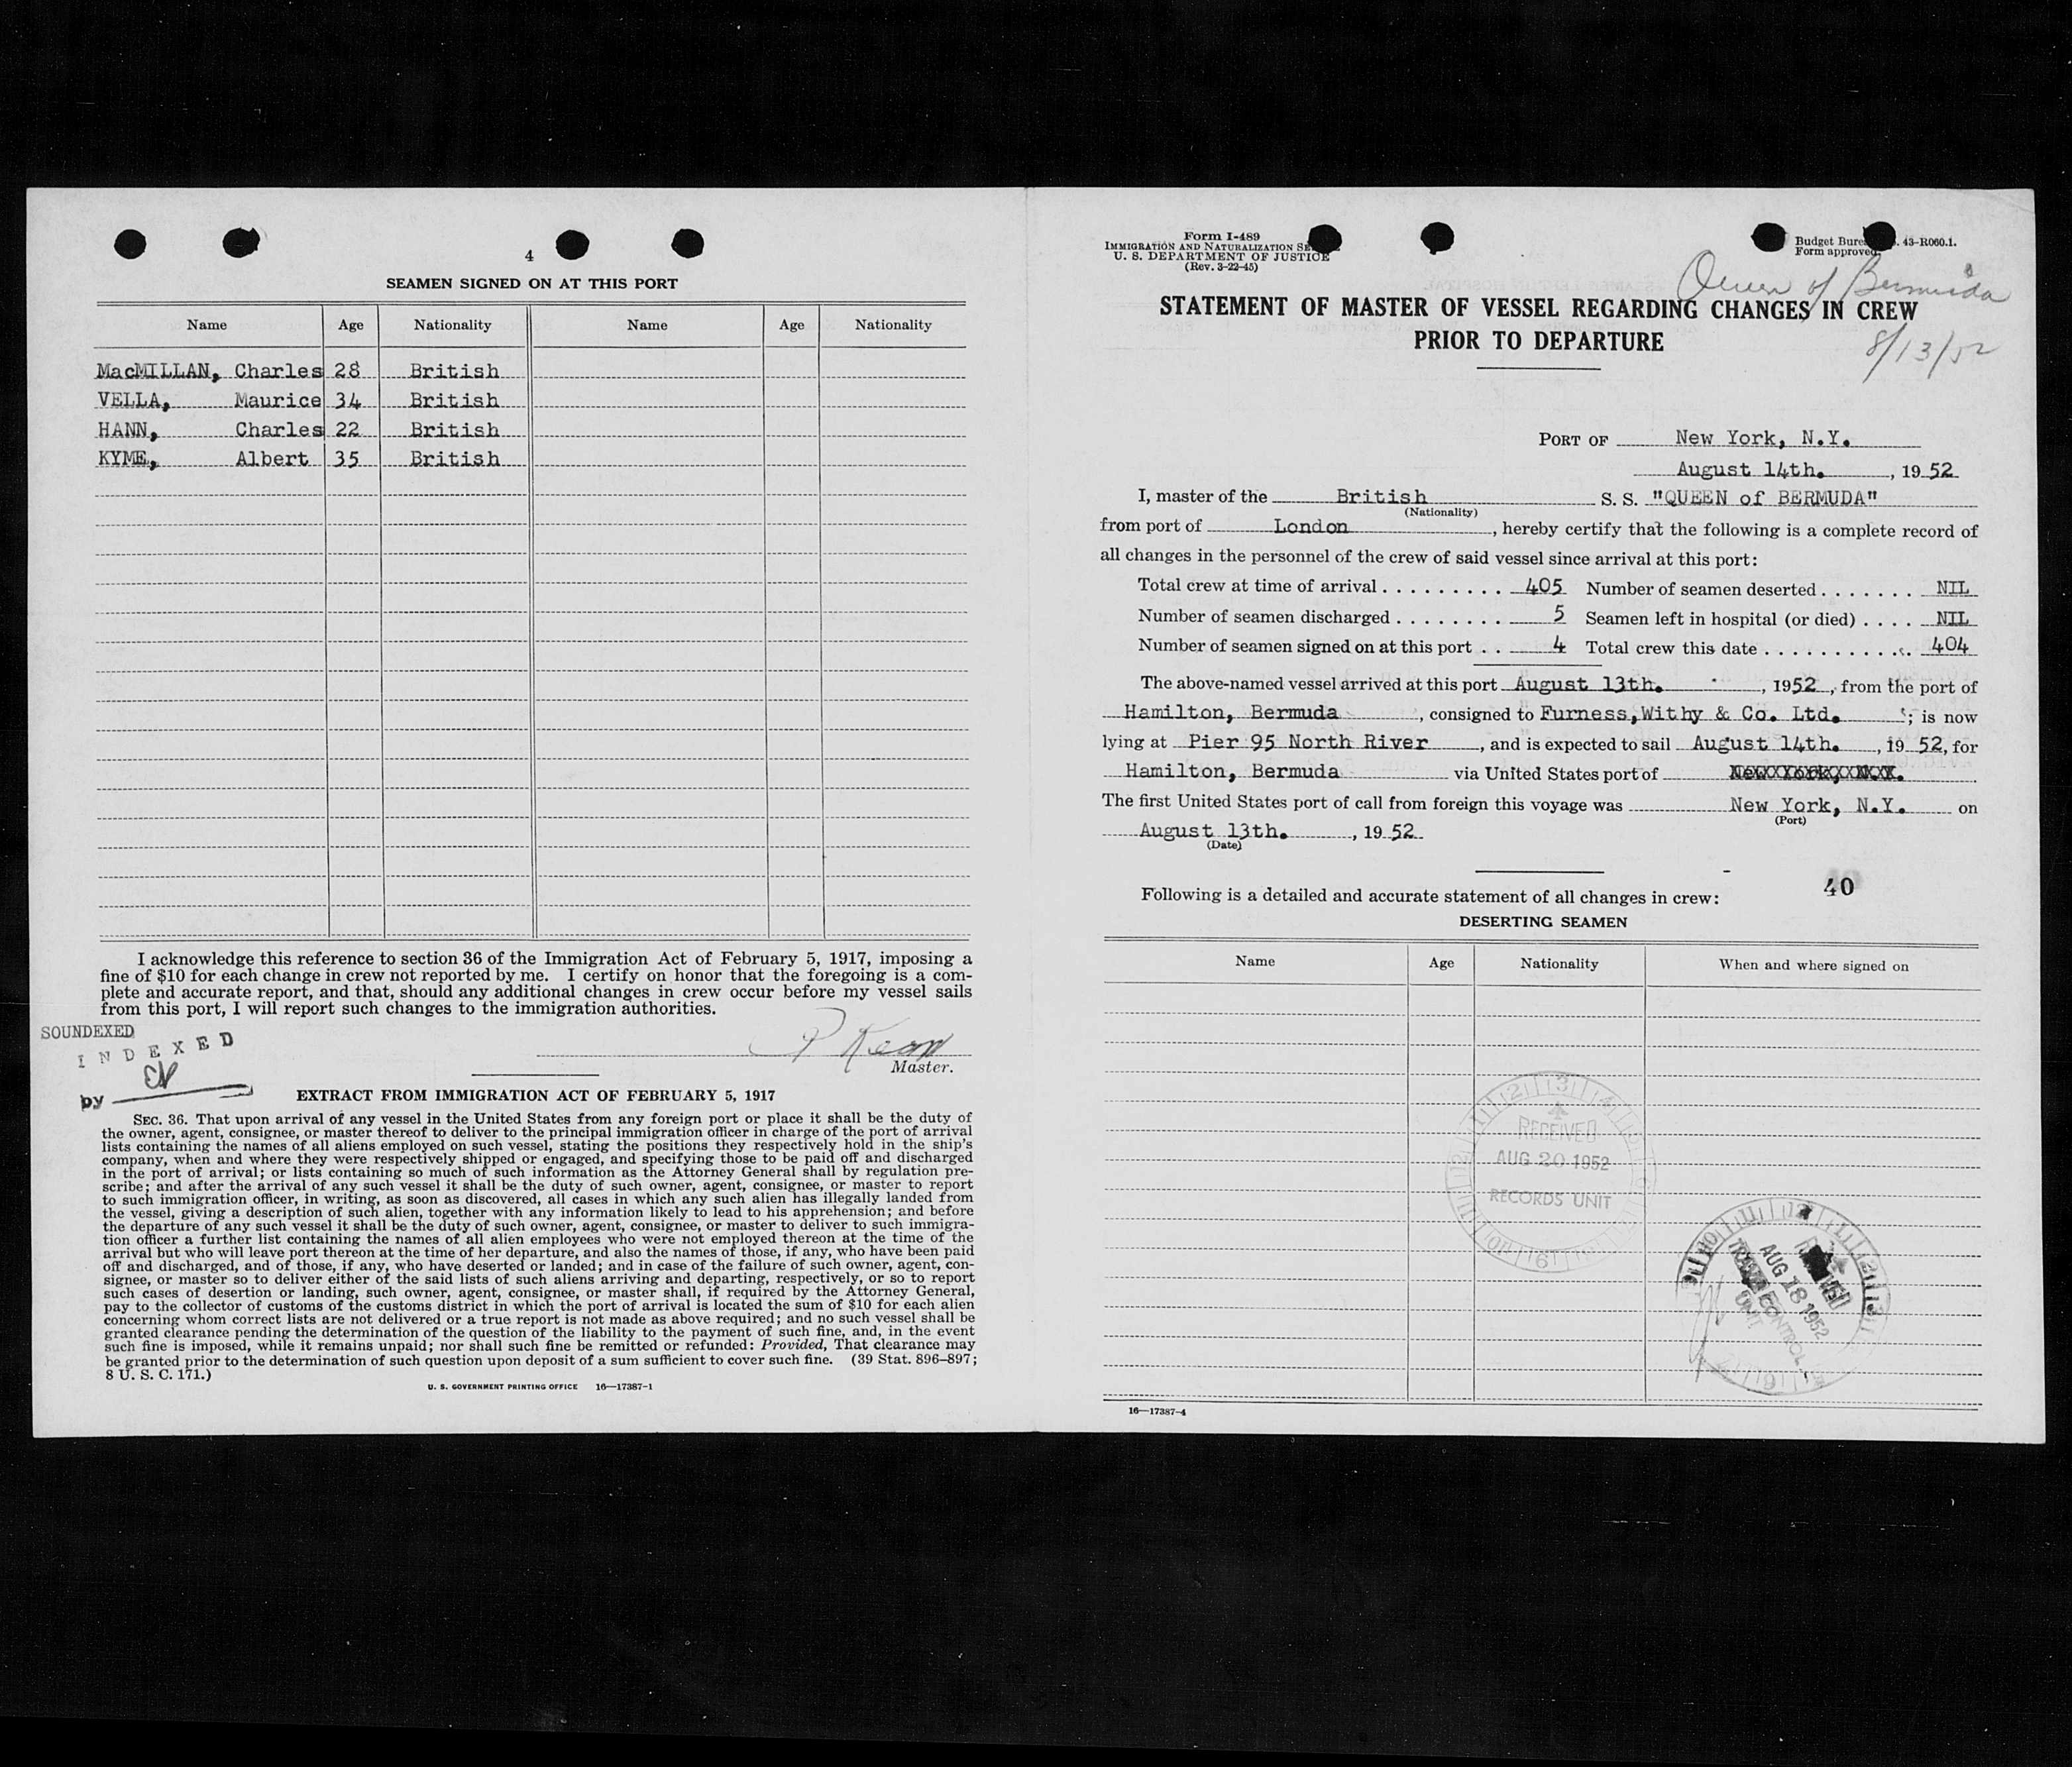 4
SEAMEN SIGNED ON AT THIS PORT
Name Age Nationality Name Age Nationality
MacMILLAN, Charles 28 British
VELLA, Maurice 34 British
HANN, Charles 22 British
KYME, Albert 35 British
I acknowledge this reference to section 36 of the Immigration Act of February 5, 1917, imposing a
fine of $10 for each change in crew not reported by me. I certify on honor that the foregoing is a com-
plete and accurate report, and that, should any additional changes in crew occur before my vessel sails
from this port, I will report such changes to the immigration authorities.
SOUNDEXED
INDEXED
by
Master.
EXTRACT FROM IMMIGRATION ACT OF FEBRUARY 5, 1917
SEC. 36. That upon arrival of any vessel in the United States from any foreign port or place it shall be the duty of
the owner, agent, consignee, or master thereof to deliver to the principal immigration officer in charge of the port of arrival
lists containing the names of all aliens employed on such vessel, stating the positions they respectively hold in the ship's
company, when and where they were respectively shipped or engaged, and specifying those to be paid off and discharged
in the port of arrival; or lists containing so much of such information as the Attorney General shall by regulation pre-
scribe; and after the arrival of any such vessel it shall be the duty of such owner, agent, consignee, or master to report
to such immigration officer, in writing, as soon as discovered, all cases in which any such alien has illegally landed from
the vessel, giving a description of such alien, together with any information likely to lead to his apprehension; and before
the departure of any such vessel it shall be the duty of such owner, agent, consignee, or master to deliver to such immigra-
tion officer a further list containing the names of all alien employees who were not employed thereon at the time of the
arrival but who will leave port thereon at the time of her departure, and also the names of those, if any, who have been paid
off and discharged, and of those, if any, who have deserted or landed; and in case of the failure of such owner, agent, con-
signee, or master so to deliver either of the said lists of such aliens arriving and departing, respectively, or so to report
such cases of desertion or landing, such owner, agent, consignee, or master shall, if required by the Attorney General,
pay to the collector of customs of the customs district in which the port of arrival is located the sum of $10 for each alien
concerning whom correct lists are not delivered or a true report is not made as above required; and no such vessel shall be
granted clearance pending the determination of the question of the liability to the payment of such fine, and, in the event
such fine is imposed, while it remains unpaid; nor shall such fine be remitted or refunded: Provided, That clearance may
be granted prior to the determination of such question upon deposit of a sum sufficient to cover such fine. (39 Stat. 896–897;
8 U. S. C. 171.)
U. S. GOVERNMENT PRINTING OFFICE 16—17387-1
Form I-489
IMMIGRATION AND NATURALIZATION
U. S. DEPARTMENT OF JUSTICE
(Rev. 3-22-45)
Budget 43-R060.1.
Form approved.
Queen of Bermuda
8/13/52
STATEMENT OF MASTER OF VESSEL REGARDING CHANGES IN CREW
PRIOR TO DEPARTURE
PORT OF New York, N.Y.
August 14th., 1952
I, master of the British S. S. "QUEEN of BERMUDA"
(Nationality)
from port of London, hereby certify that the following is a complete record of
all changes in the personnel of the crew of said vessel since arrival at this port:
Total crew at time of arrival . . . . . . . . . 405 Number of seamen deserted . . . . . . . NIL
Number of seamen discharged . . . . . . . . 5 Seamen left in hospital (or died) . . . . NIL
Number of seamen signed on at this port . . 4 Total crew this date . . . . . . . . . . . 404
The above-named vessel arrived at this port August 13th., 1952, from the port of
Hamilton, Bermuda, consigned to Furness, Withy & Co. Ltd.; is now
lying at Pier 95 North River, and is expected to sail August 14th., 1952, for
Hamilton, Bermuda via United States port of
The first United States port of call from foreign this voyage was New York, N.Y. on
(Port)
August 13th., 1952
(Date)
40
Following is a detailed and accurate statement of all changes in crew:
DESERTING SEAMEN
Name Age Nationality When and where signed on
RECEIVED
AUG 20 1952
RECORDS UNIT
AUG 18 1952
CONTROL
UNIT
16—17387-4